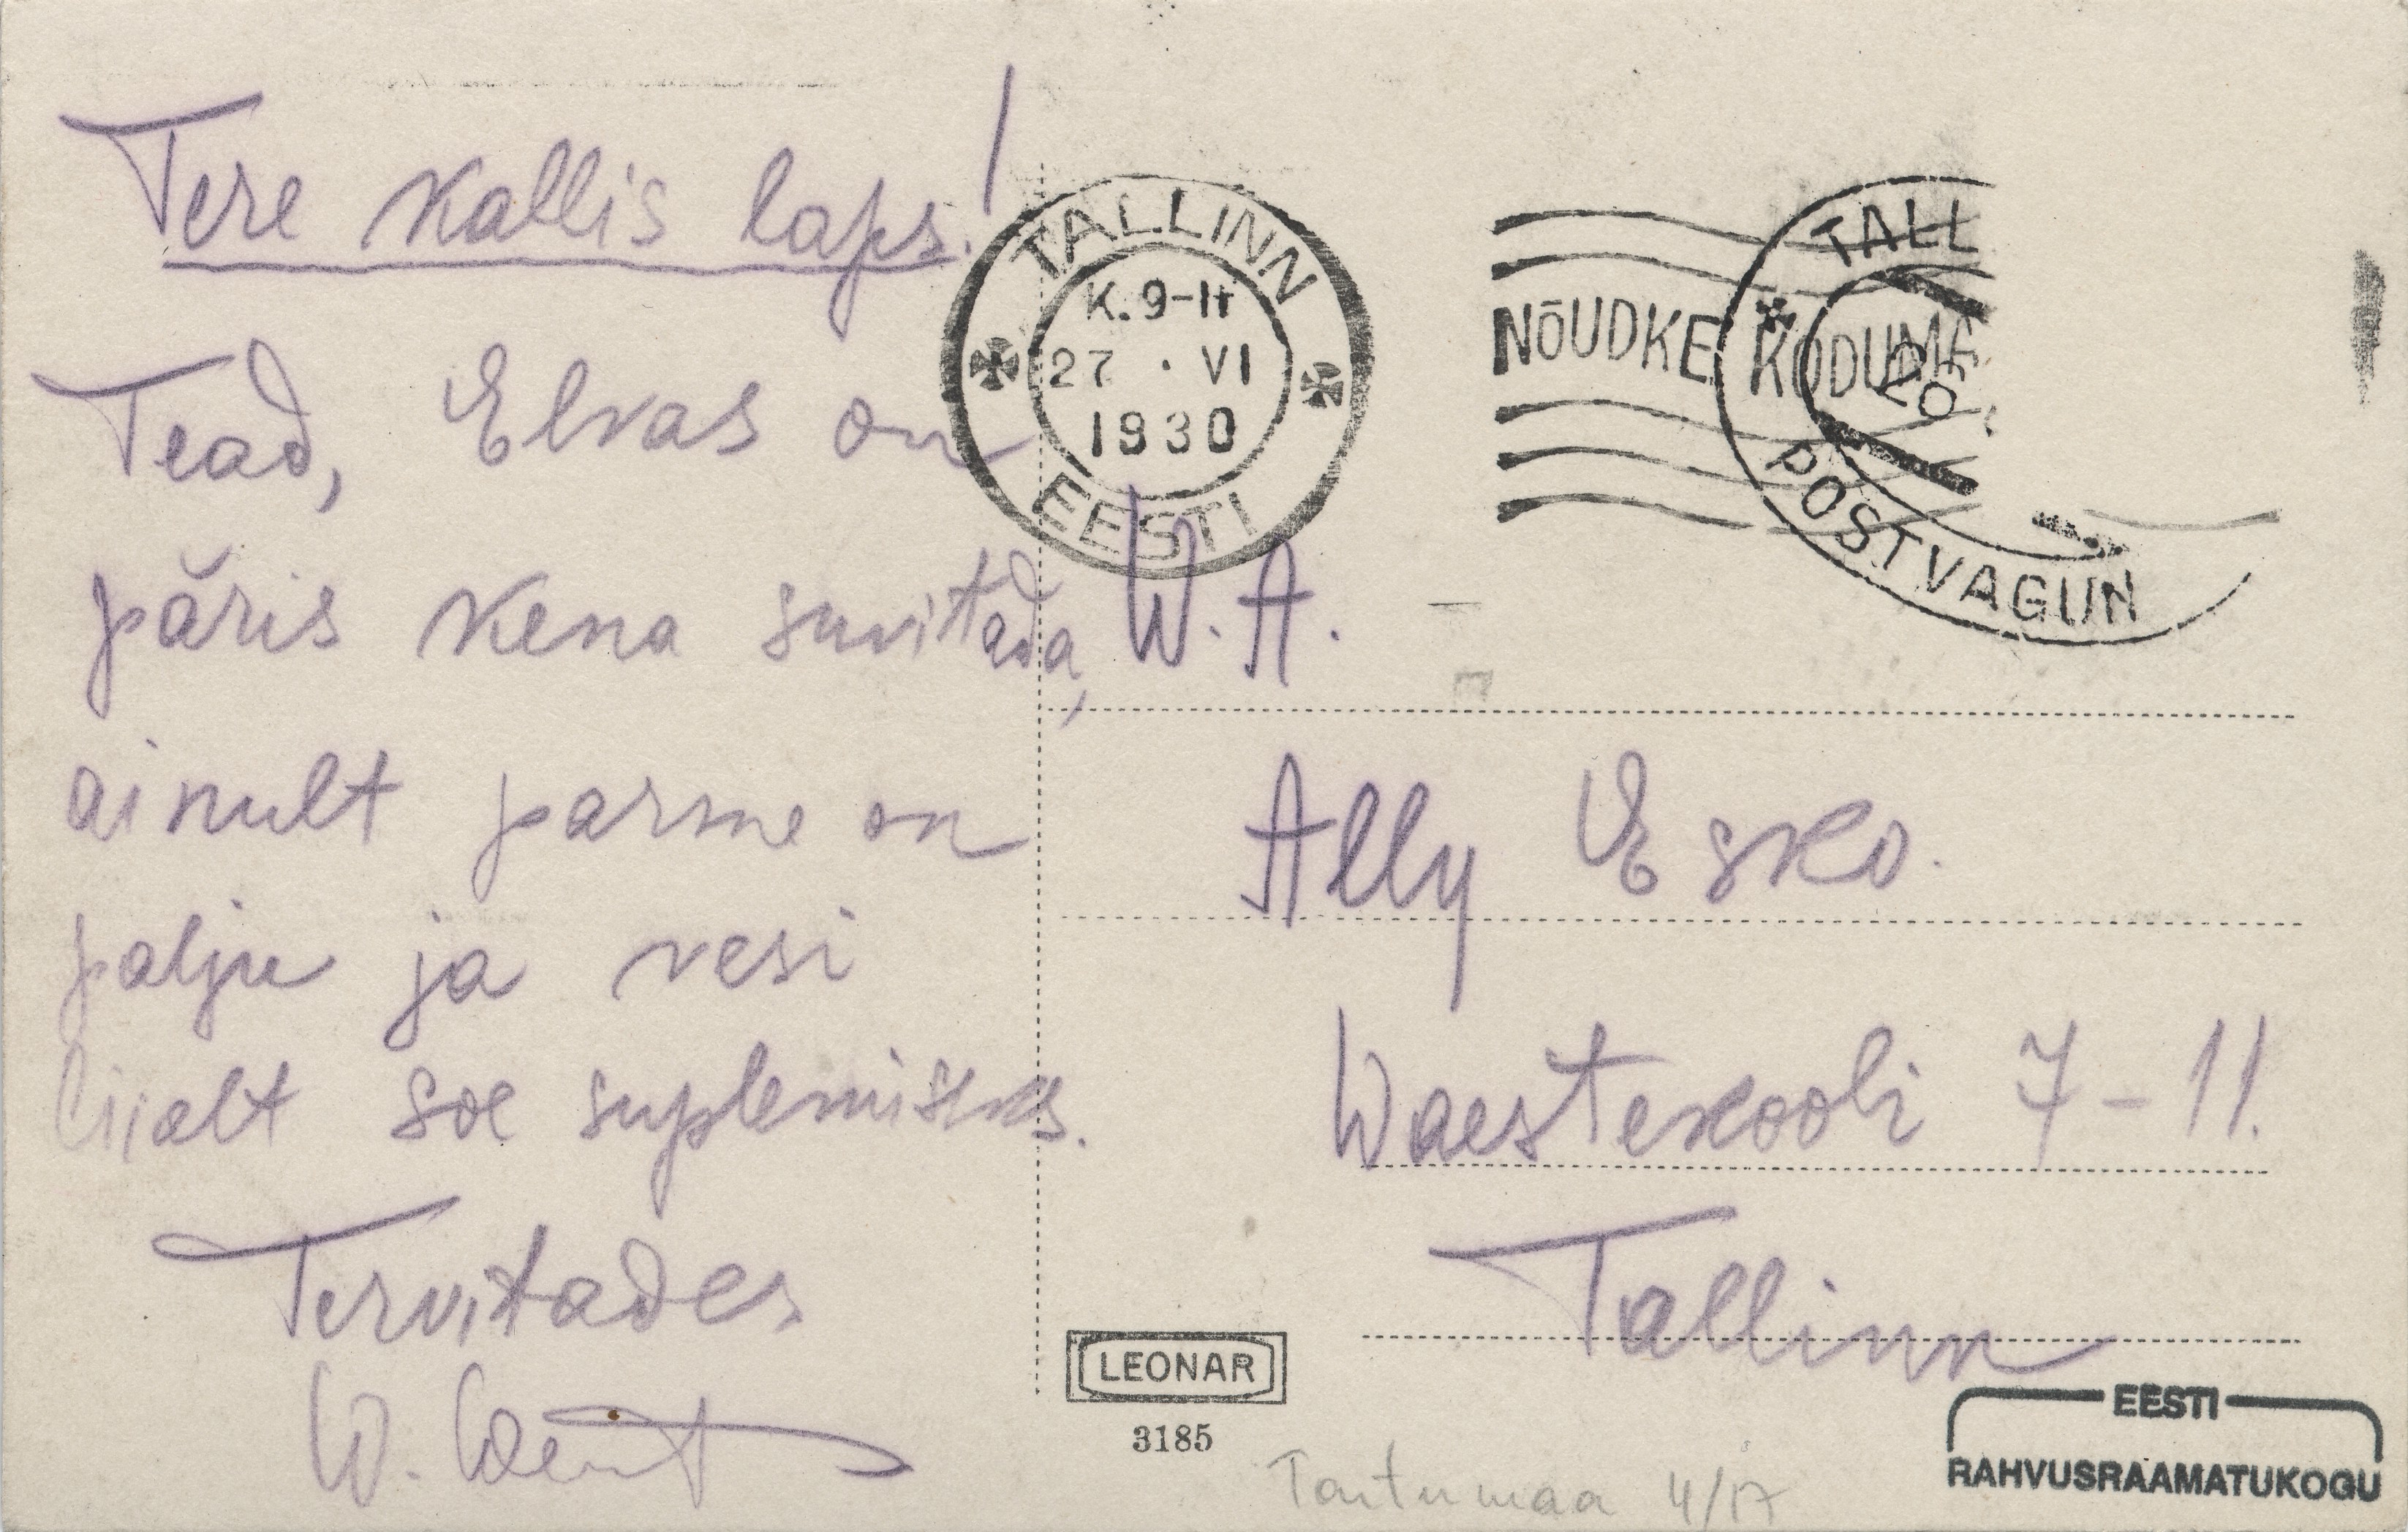 Tere kallis laps!
Tead, Elvas on
päris kena suvitada,
ainult parme on
palju ja vesi
liialt soe suplemiseks.
Tervitades
W.
TALLINN
K. 9-11
27 · VI
1930
EESTI
NÕUDKE KODUMA
TALL
26
POSTVAGUN
W. A.
Ally Esko.
Waestekooli 7-11.
Tallinn
LEONAR
3185
Tartumaa 4/17
EESTI
RAHVUSRAAMATUKOGU